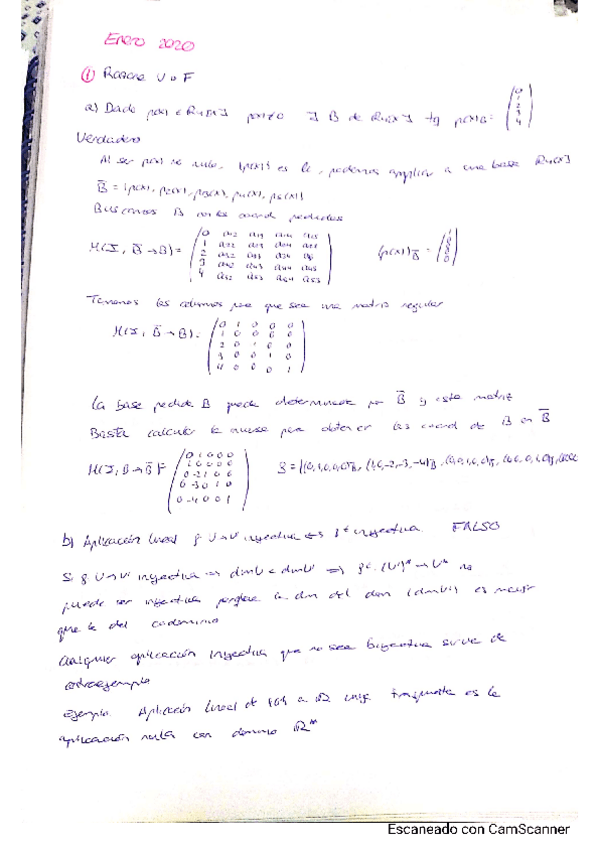 Enero 2020
① Razone V o F
a) Dado p(x) ∈ R₄[x] p(x)≠0 ∃ B de R₄[x] tq p(x)_B = (0 1 2 3 4)
Verdadero
Al ser p(x) no nulo, {p(x)} es li, podemos ampliar a una base R₄[x]
B̄ = {p(x), p₂(x), p₃(x), p₄(x), p₅(x)}
Buscamos B con las coord pedidas
M(I, B̄→B) = (p(x))_B̄ =
Tomamos las columnas para que sea una matriz regular
M(I, B̄→B) = (0 1 0 0 0
1 0 0 0 0
2 0 1 0 0
3 0 0 1 0
4 0 0 0 1)
La base pedida B queda determinada por B̄ y esta matriz
Basta calcular la inversa para obtener las coord de B en B̄
M(I, B→B̄) = (0 1 0 0 0
1 0 0 0 0
0 -2 1 0 0
0 -3 0 1 0
0 -4 0 0 1)
b) Aplicación lineal f V→V' inyectiva ⇔ fᵗ inyectiva FALSO
Si f V→V' inyectiva ⇒ dimV < dimV' ⇒ fᵗ (V')* → V* no
puede ser inyectiva porque la dim del dom (dimV') es mayor
que la del codominio
Cualquier aplicación inyectiva que no sea biyectiva sirve de
contraejemplo
Ejemplo Aplicación lineal de {0} a R cuya traspuesta es la
aplicación nula con dominio R*
Escaneado con CamScanner